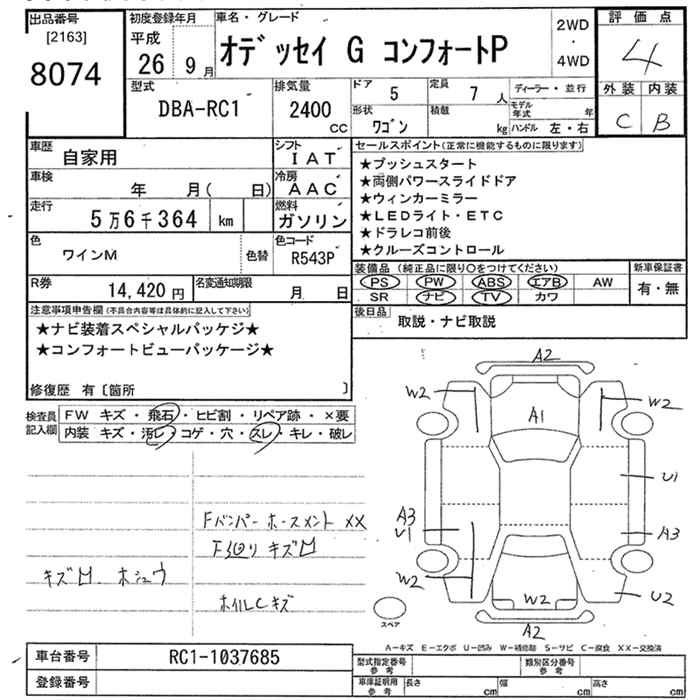 出品番号
[2163]
8074
初度登録年月
平成
26 9月
車名・グレード
オデッセイ G コンフォートP
2WD
・
4WD
評価点
4
外装 内装
C B
型式
DBA-RC1
排気量
2400
CC
ドア 5
形状
ワゴン
定員 7 人
積載 kg
ディーラー・並行
モデル年式 年
ハンドル 左・右
車歴 自家用
シフト IAT
車検 年 月( 日)
冷房 AAC
走行 5万6千364 km
燃料 ガソリン
色 ワインM
色替
色コード R543P
R券 14,420円
名変通知期限 月 日
セールスポイント(正常に機能するものに限ります)
★プッシュスタート
★両側パワースライドドア
★ウィンカーミラー
★LEDライト・ETC
★ドラレコ前後
★クルーズコントロール
装備品(純正品に限り○をつけてください)
PS PW ABS エアB AW
SR ナビ TV カワ
新車保証書
有・無
後日品 取説・ナビ取説
注意事項申告欄(不具合内容等は具体的に記入して下さい)
★ナビ装着スペシャルパッケジ★
★コンフォートビューパッケージ★
修復歴 有〔箇所 〕
検査員記入欄
FW キズ・飛石・ヒビ割・リペア跡・×要
内装 キズ・汚レ・コゲ・穴・スレ・キレ・破レ
Fバンパー ホースメント XX
F廻り キズ
キズ ホシュウ
ホイルCキズ
A2
W2
W2
A1
U1
A3
U1
A3
W2
W2
U2
A2
スペア
A-キズ E-エクボ U-凹み W-補修跡 S-サビ C-腐食 XX-交換済
車台番号 RC1-1037685
登録番号
型式指定番号参考
類別区分番号参考
車庫証明用参考
長さ cm
幅 cm
高さ cm